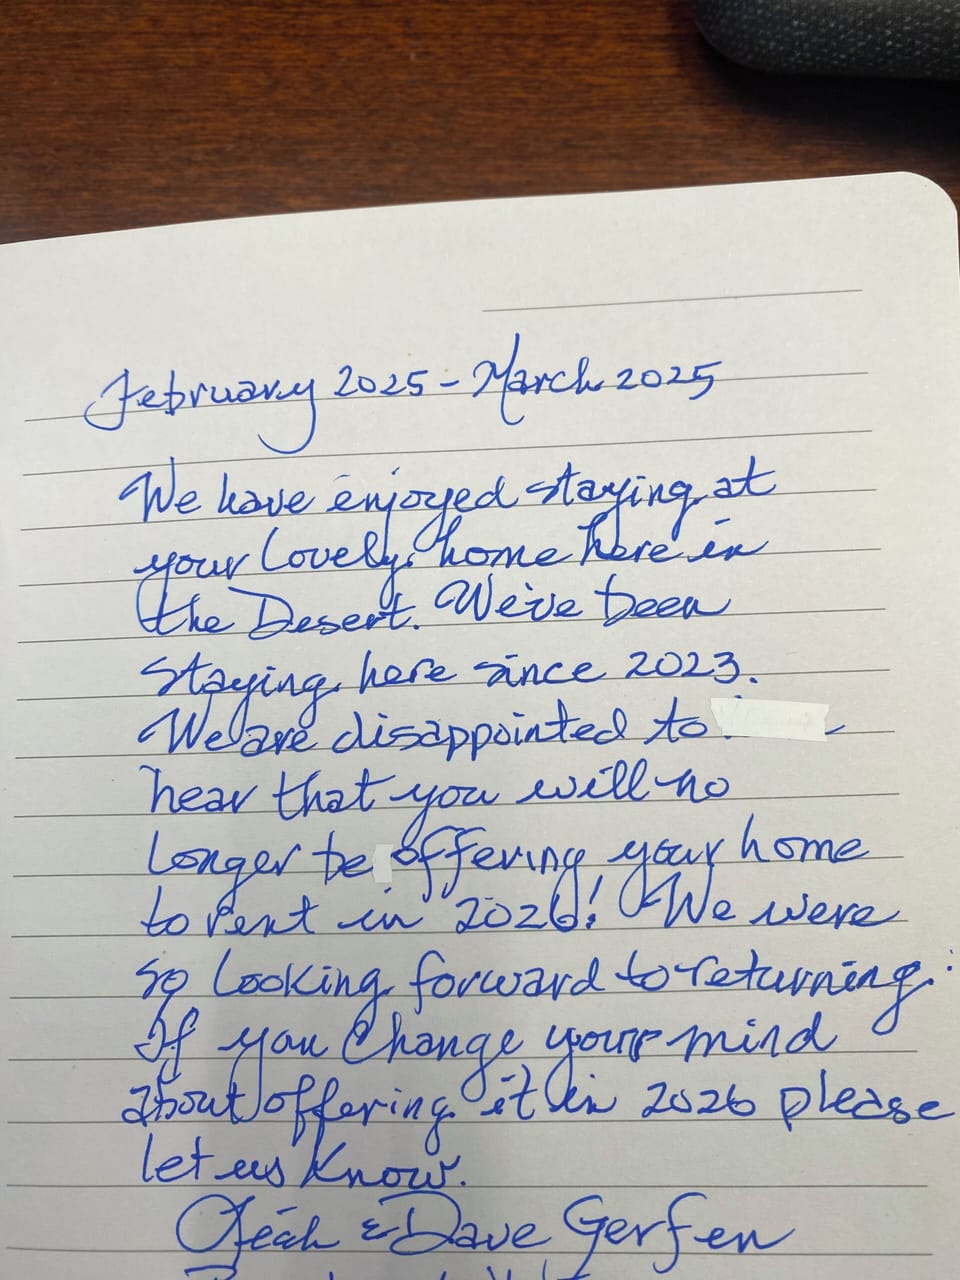 February 2025 - March 2025
We have enjoyed staying at
your lovely home here in
the Desert. We've been
staying here since 2023.
We are disappointed to
hear that you will no
longer be offering your home
to rent in 2026! We were
so looking forward to returning.
If you change your mind
about offering it in 2026 please
let us know.
& Dave Gerfen